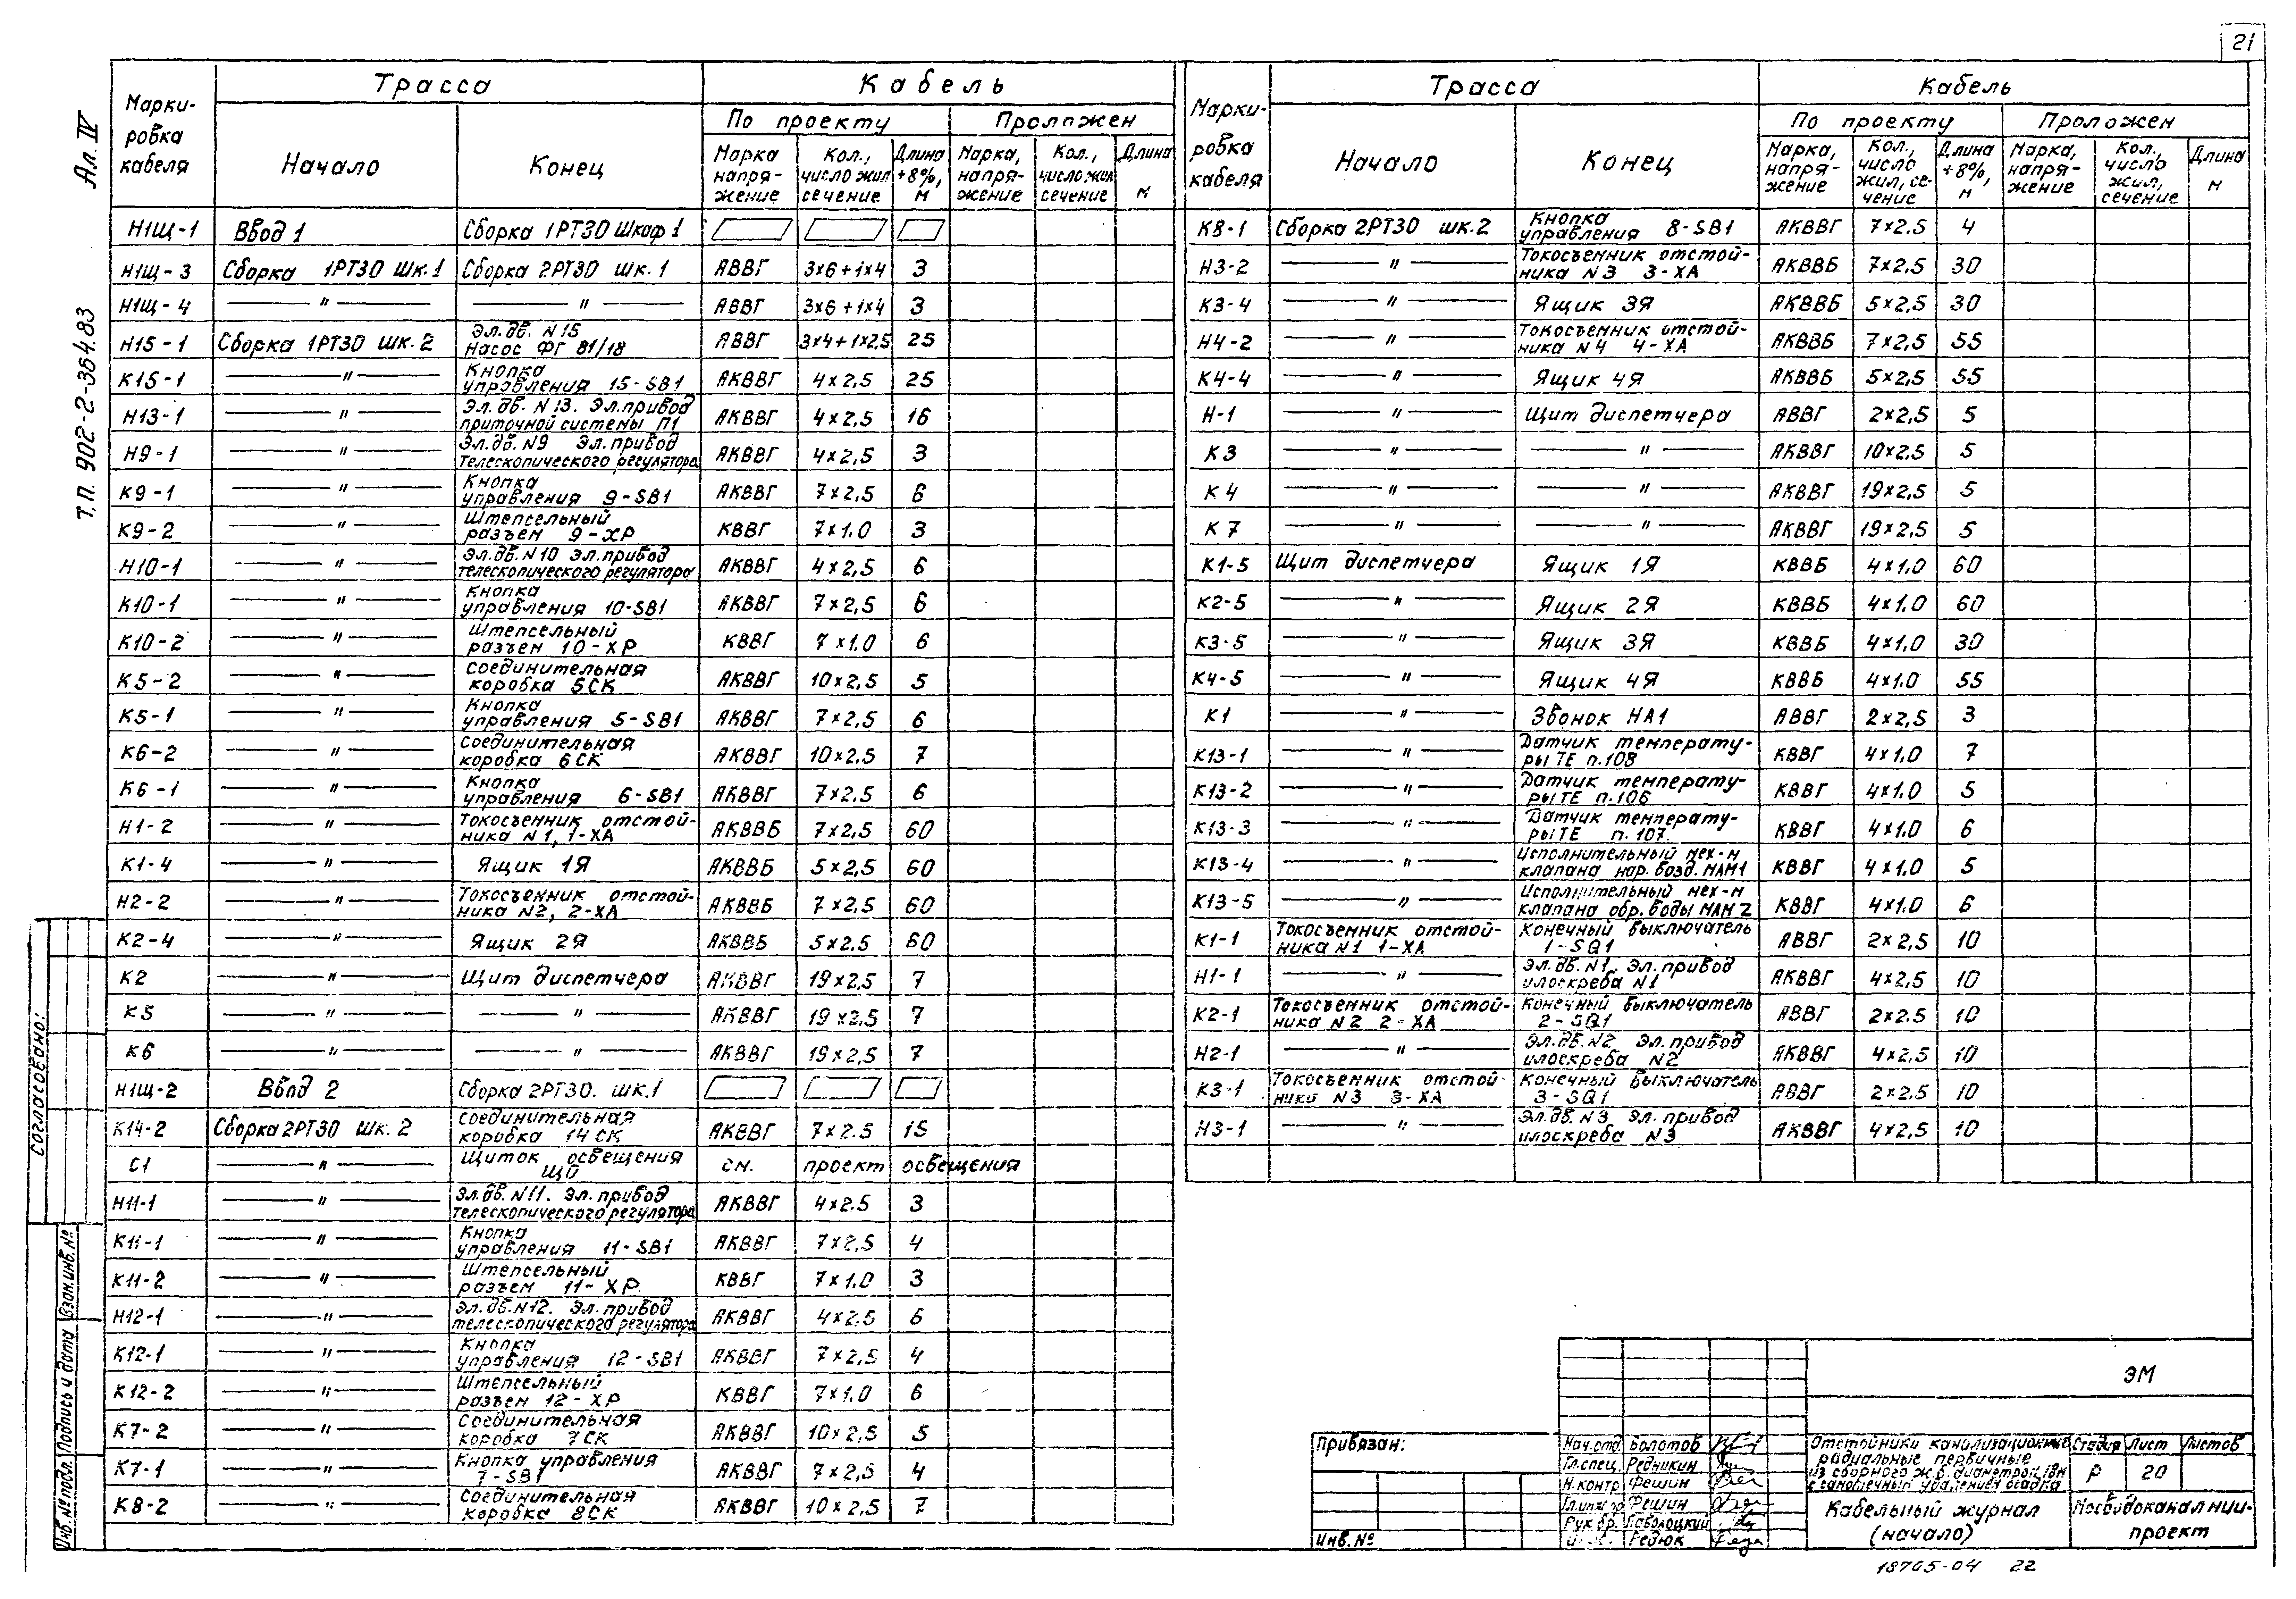 21
Ал. IV
Т.П. 902-2-364.83
Марки-
ровка
кабеля
Трасса
Кабель
Начало
Конец
По проекту
Проложен
Марка
напря-
жение
Кол.,
число жил
сечение
Длина
+8%,
м
Марка,
напря-
жение
Кол.,
число жил
сечение
Длина
м
Н1Щ-1 Ввод 1 Сборка 1РТ30 Шкаф 1
Н1Щ-3 Сборка 1РТ30 шк.1 Сборка 2РТ30 шк.1 АВВГ 3х6+1х4 3
Н1Щ-4 — " — — " — АВВГ 3х6+1х4 3
Н15-1 Сборка 1РТ30 шк.2 Эл.дв. N15 Насос ФГ 81/18 АВВГ 3х4+1х2,5 25
К15-1 — " — Кнопка управления 15-SB1 АКВВГ 4х2,5 25
Н13-1 — " — Эл.дв. N13. Эл.привод приточной системы П1 АКВВГ 4х2,5 16
Н9-1 — " — Эл.дв. N9 Эл.привод телескопического регулятора АКВВГ 4х2,5 3
К9-1 — " — Кнопка управления 9-SB1 АКВВГ 7х2,5 6
К9-2 — " — Штепсельный разъем 9-ХР КВВГ 7х1.0 3
Н10-1 — " — Эл.дв. N10 Эл.привод телескопического регулятора АКВВГ 4х2,5 6
К10-1 — " — Кнопка управления 10-SB1 АКВВГ 7х2,5 6
К10-2 — " — Штепсельный разъем 10-ХР КВВГ 7х1.0 6
К5-2 — " — Соединительная коробка 5СК АКВВГ 10х2,5 5
К5-1 — " — Кнопка управления 5-SB1 АКВВГ 7х2,5 6
К6-2 — " — Соединительная коробка 6СК АКВВГ 10х2,5 7
К6-1 — " — Кнопка управления 6-SB1 АКВВГ 7х2,5 6
Н1-2 — " — Токосъемник отстой-ника N1, 1-ХА АКВВБ 7х2,5 60
К1-4 — " — Ящик 1Я АКВВБ 5х2,5 60
Н2-2 — " — Токосъемник отстой-ника N2, 2-ХА АКВВБ 7х2,5 60
К2-4 — " — Ящик 2Я АКВВБ 5х2,5 60
К2 — " — Щит диспетчера АКВВГ 19х2,5 7
К5 — " — — " — АКВВГ 19х2.5 7
К6 — " — — " — АКВВГ 19х2,5 7
Н1Щ-2 Ввод 2 Сборка 2РТ30. шк.1
К14-2 Сборка 2РТ30 шк. 2 Соединительная коробка 14СК АКВВГ 7х2.5 15
С1 — " — Щиток освещения ЩО см. проект освещения
Н11-1 — " — Эл.дв. N11. Эл.привод телескопического регулятора АКВВГ 4х2.5 3
К11-1 — " — Кнопка управления 11-SB1 АКВВГ 7х2,5 4
К11-2 — " — Штепсельный разъем 11-ХР КВВГ 7х1,0 3
Н12-1 — " — Эл.дв. N12. Эл.привод телескопического регулятора АКВВГ 4х2,5 6
К12-1 — " — Кнопка управления 12-SB1 АКВВГ 7х2,5 4
К12-2 — " — Штепсельный разъем 12-ХР КВВГ 7х1.0 6
К7-2 — " — Соединительная коробка 7СК АКВВГ 10х2,5 5
К7-1 — " — Кнопка управления 7-SB1 АКВВГ 7х2,5 4
К8-2 — " — Соединительная коробка 8СК АКВВГ 10х2,5 7
Марки-
ровка
кабеля
Трасса
Кабель
Начало
Конец
По проекту
Проложен
Марка,
напря-
жение
Кол.,
число
жил, се-
чение
Длина
+8%,
м
Марка,
напря-
жение
Кол.,
число
жил,
сечение
Длина
м
К8-1 Сборка 2РТ30 шк.2 Кнопка управления 8-SB1 АКВВГ 7х2.5 4
Н3-2 — " — Токосъемник отстой-ника N3 3-ХА АКВВБ 7х2,5 30
К3-4 — " — Ящик 3Я АКВВБ 5х2,5 30
Н4-2 — " — Токосъемник отстой-ника N4 4-ХА АКВВБ 7х2,5 55
К4-4 — " — Ящик 4Я АКВВБ 5х2,5 55
Н-1 — " — Щит диспетчера АВВГ 2х2,5 5
К3 — " — — " — АКВВГ 10х2.5 5
К4 — " — — " — АКВВГ 19х2,5 5
К7 — " — — " — АКВВГ 19х2.5 5
К1-5 Щит диспетчера Ящик 1Я КВВБ 4х1.0 60
К2-5 — " — Ящик 2Я КВВБ 4х1.0 60
К3-5 — " — Ящик 3Я КВВБ 4х1.0 30
К4-5 — " — Ящик 4Я КВВБ 4х1.0 55
К1 — " — Звонок НА1 АВВГ 2х2,5 3
К13-1 — " — Датчик температу-ры ТЕ п.108 КВВГ 4х1.0 7
К13-2 — " — Датчик температу-ры ТЕ п.106 КВВГ 4х1.0 5
К13-3 — " — Датчик температу-ры ТЕ п.107. КВВГ 4х1.0 6
К13-4 — " — Исполнительный мех-м клапана нар. возд. МАМ1 КВВГ 4х1.0 5
К13-5 — " — Исполнительный мех-м клапана обр. воды МАМ2 КВВГ 4х1.0 6
К1-1 Токосъемник отстой-ника N1 1-ХА Конечный выключатель 1-SQ1 АВВГ 2х2,5 10
Н1-1 — " — Эл.дв. N1. Эл.привод илоскреба N1 АКВВГ 4х2,5 10
К2-1 Токосъемник отстой-ника N2 2-ХА Конечный выключатель 2-SQ1 АВВГ 2х2.5 10
Н2-1 — " — Эл.дв. N2 Эл.привод илоскреба N2 АКВВГ 4х2,5 10
К3-1 Токосъемник отстой-ника N3 3-ХА Конечный выключатель 3-SQ1 АВВГ 2х2.5 10
Н3-1 — " — Эл.дв. N3 Эл.привод илоскреба N3 АКВВГ 4х2,5 10
Согласовано:
Взам.инв.№
Подпись и дата
Инв.№ подл.
Привязан:
Инв.№
Нач.отд. Болотов
Гл.спец. Редникин
Н.контр Фешин
Фешин
Рук.бр. Заболоцкий
Редюк
ЭМ
Отстойники канализационные
радиальные первичные
из сборного ж.б. диаметром 18м
с самотечным удалением осадка
Стадия Лист Листов
Р 20
Кабельный журнал
(начало)
Мосводоканалнии-
проект
18705-04 22